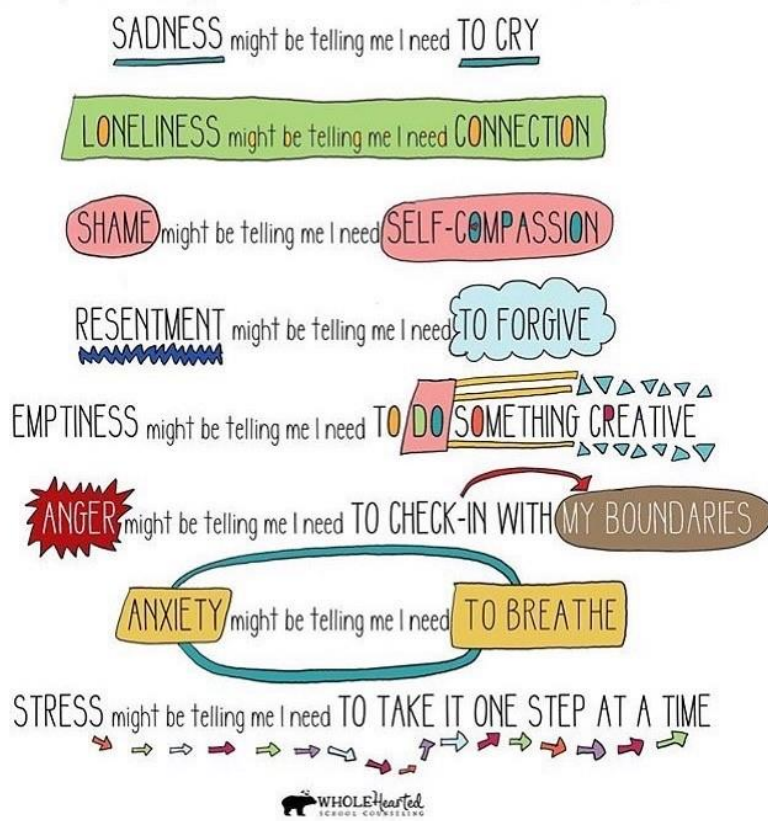 SADNESS might be telling me I need TO CRY
LONELINESS might be telling me I need CONNECTION
SHAME might be telling me I need SELF-COMPASSION
RESENTMENT might be telling me I need TO FORGIVE
EMPTINESS might be telling me I need TO DO SOMETHING CREATIVE
ANGER might be telling me I need TO CHECK-IN WITH MY BOUNDARIES
ANXIETY might be telling me I need TO BREATHE
STRESS might be telling me I need TO TAKE IT ONE STEP AT A TIME
WHOLEHearted
SCHOOL COUNSELING